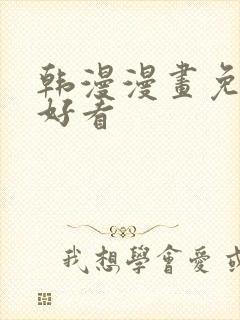 韩漫漫畫免
好看
我想學會愛或